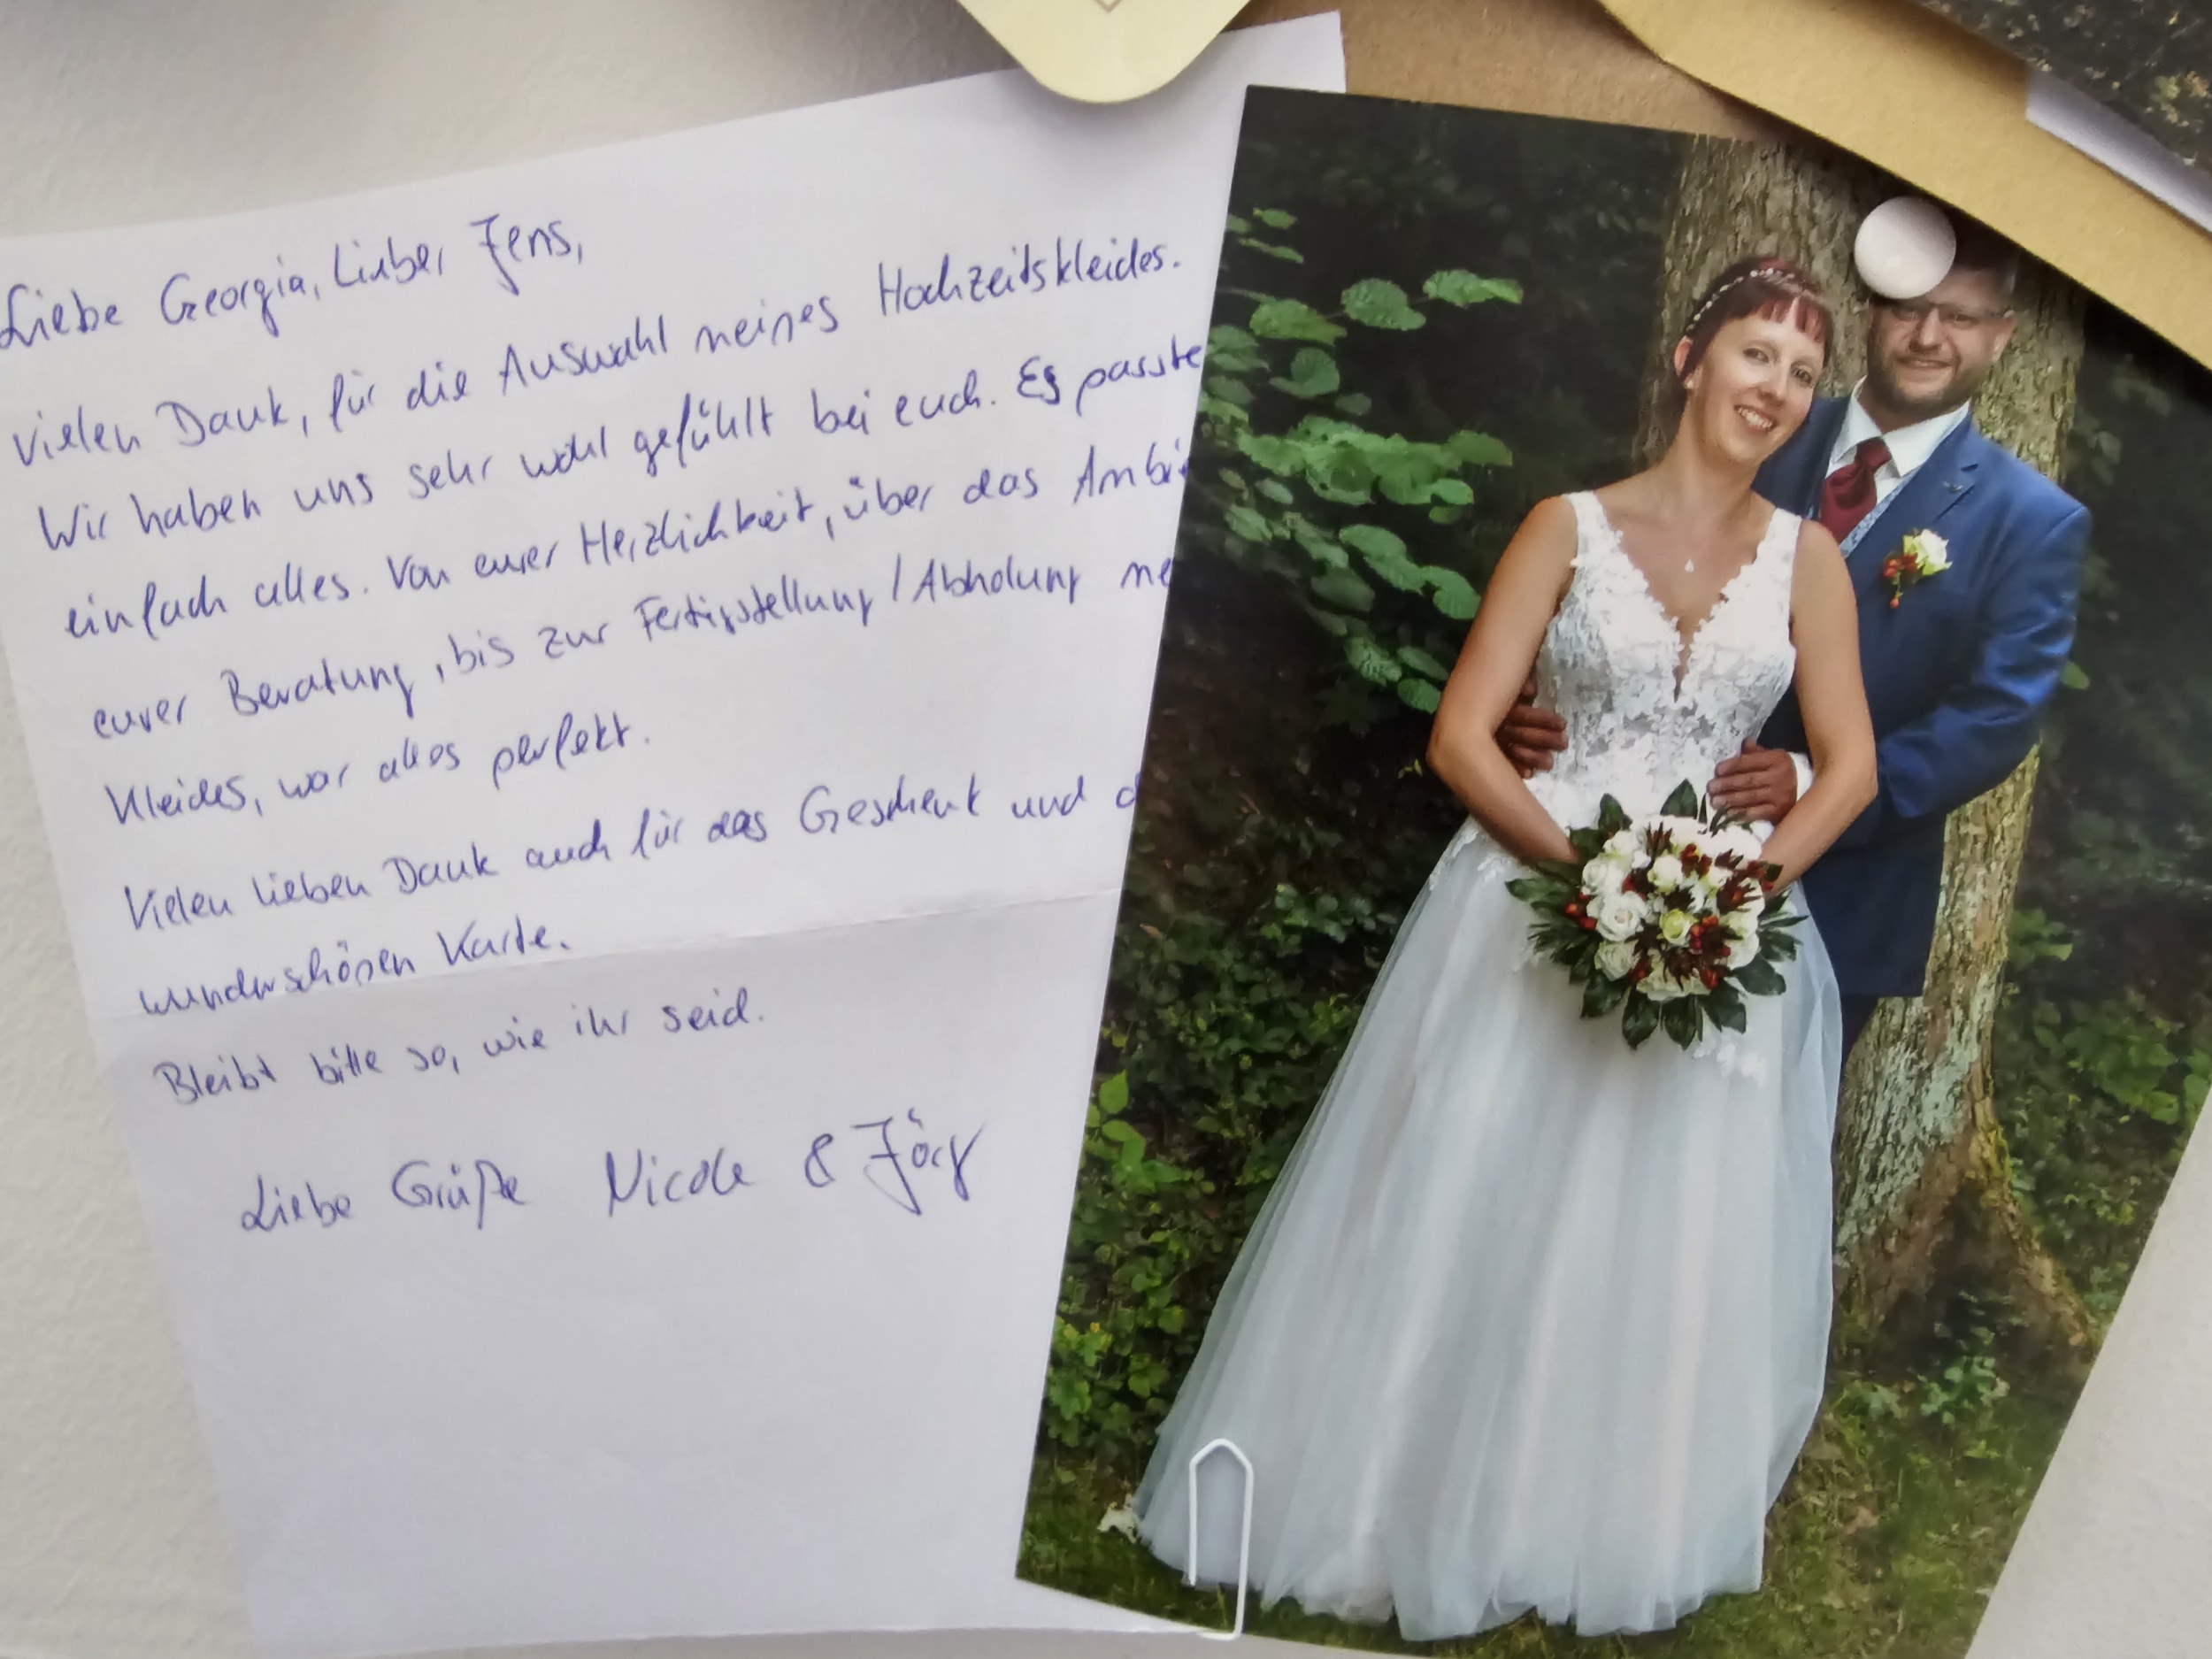 Liebe Georgia, Lieber Jens,
vielen Dank, für die Auswahl meines Hochzeitskleides.
Wir haben uns sehr wohl gefühlt bei euch. Es passte
einfach alles. Von eurer Herzlichkeit, über das Ambi
eurer Beratung, bis zur Fertigstellung / Abholung me
Kleides, war alles perfekt.
Vielen lieben Dank auch für das Geschenk und d
wunderschönen Karte.
Bleibt bitte so, wie ihr seid.
Liebe Grüße Nicole & Jörg